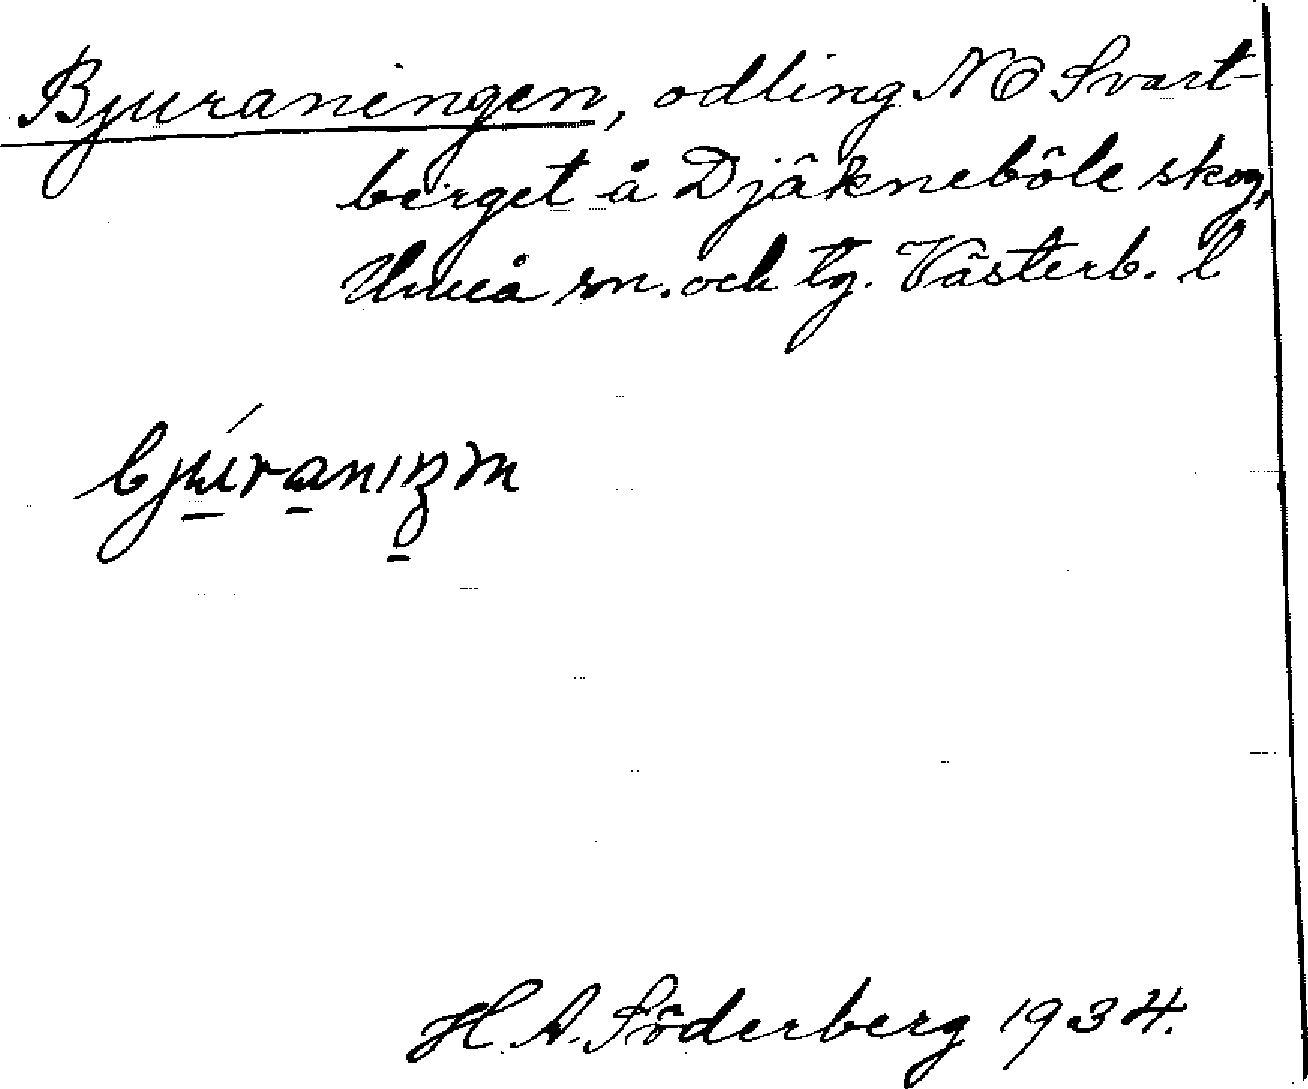 Bjuraningen, odling NO Svart-
berget å Djäkneböle skog,
Umeå sn. och tg. Västerb. l
bjúranıŋm
H. A. Söderberg 1934.